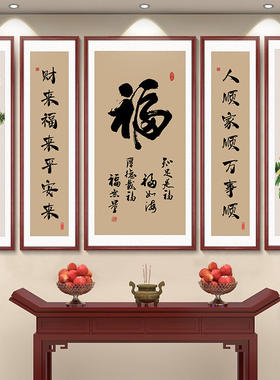 人顺家顺万事顺
福
知足是福
福如海
厚德载福
财来福来平安来